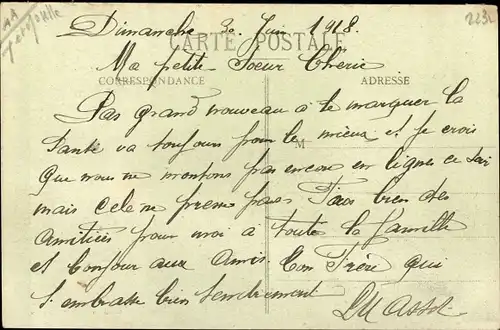 Dimanche 30 Juin 1918.
CARTE POSTALE
Ma petite Soeur Cherie
CORRESPONDANCE ADRESSE
Pas grand nouveau à te marquer la
Santé va toujours pour le mieux et je crois
M
que nous ne montons pas encore en lignes ce soir
mais cela ne presse pas. Fais bien des
amitiées pour moi à toute la famille
et bonjour aux amis. Ton Frère qui
t'embrasse bien tendrement